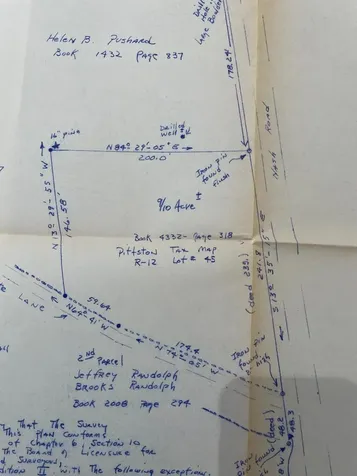 Helen B. Pushard
Book 1432 Page 837
Drilled
Hole
Large Boulder
178.24'
16" pine
Drilled
well
N 84° 29'-05" E
200.0'
Iron pin
found
flush
Nash Road
N 13° 29'-55" W
144.58'
9/10 Acre ±
Book 4332- Page 318
Pittston Tax Map
R-12 Lot # 45
(deed 235.)
241.8
S 13° 35'
E
Lane
59.64
N 64° 41' W
174.4
N 74° 05' W
Iron pin
found
high
2nd Parcel
Jeffrey Randolph
Brooks Randolph
Book 2008 Page 294
(deed)
48.2
48.3
Iron
found
That The Survey
This Plan conforms
of Chapter 6, Section 10
the Board of Licensure for
d Surveyors,
dition II with the following exception.